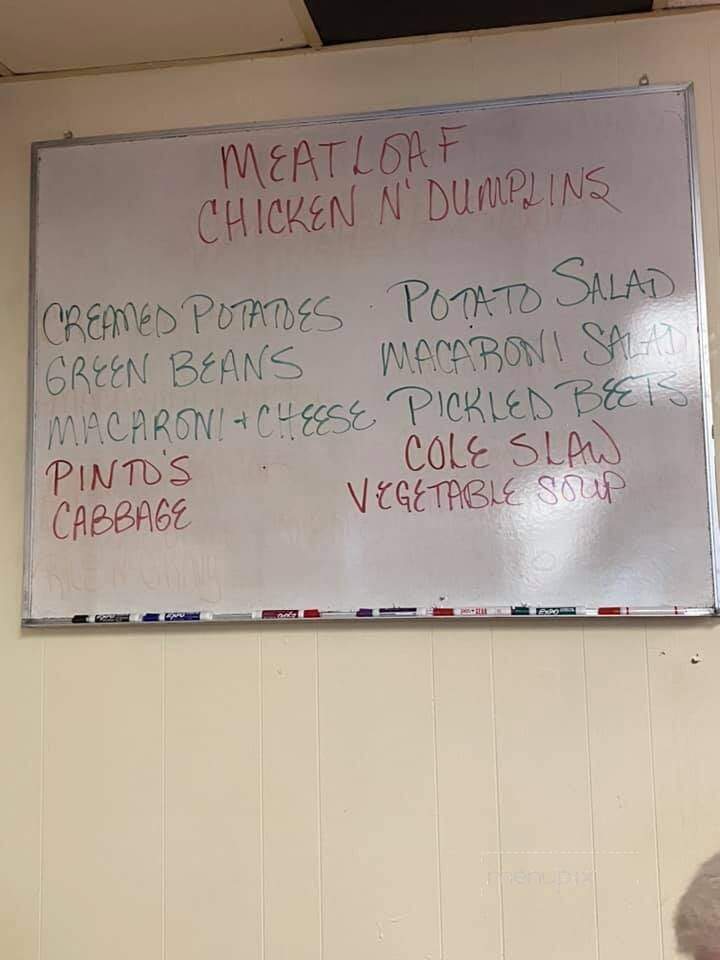 MEATLOAF
CHICKEN N' DUMPLINS
CREAMED POTATOES
GREEN BEANS
MACARONI + CHEESE
PINTO'S
CABBAGE
POTATO SALAD
MACARONI SALAD
PICKLED BEETS
COLE SLAW
VEGETABLE SOUP
EXPO
EXPO
menupix